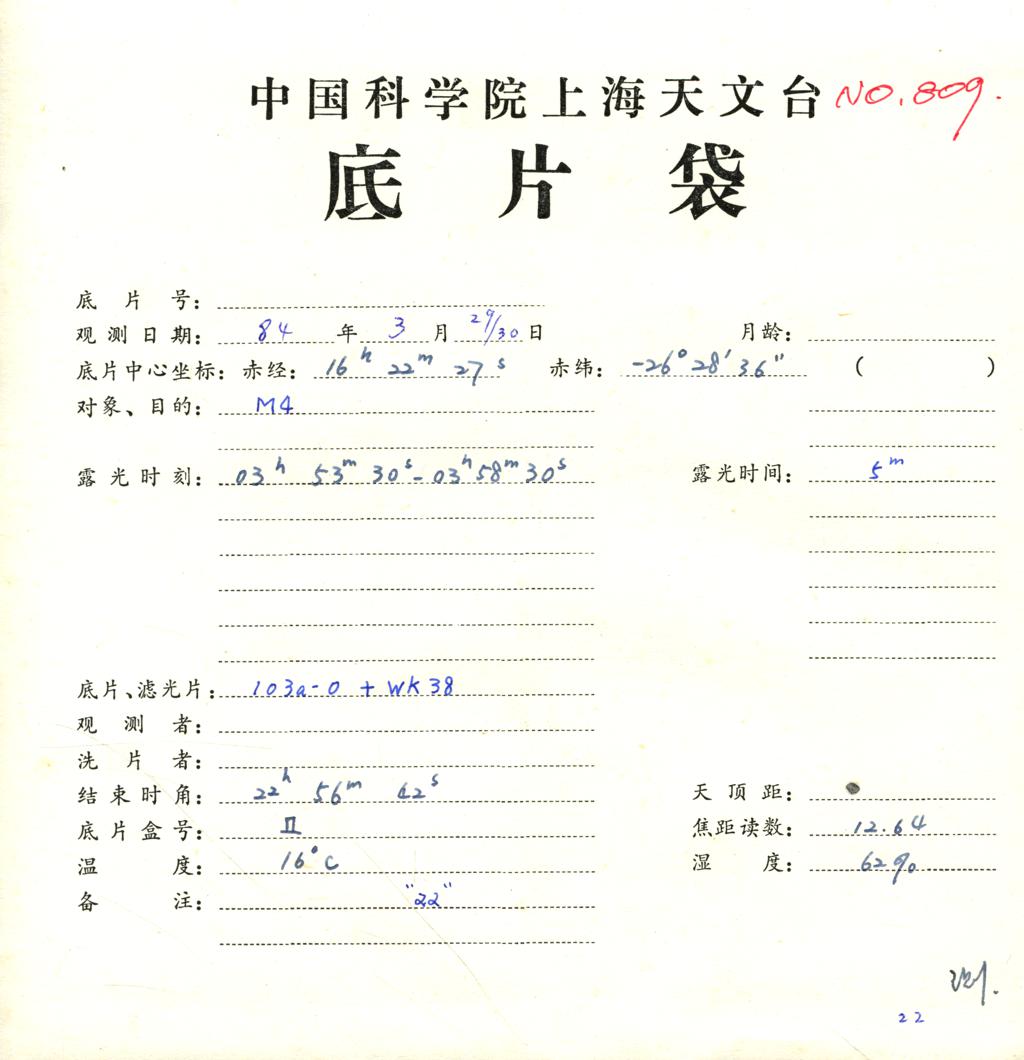 中国科学院上海天文台 NO.809.
底片袋
底片号：
观测日期： 84 年 3 月 29/30 日 月龄：
底片中心坐标：赤经： 16h 22m 27s 赤纬： -26° 28′ 36″ ( )
对象、目的： M4
露光时刻： 03h 53m 30s - 03h 58m 30s 露光时间： 5m
底片、滤光片： 103a-O + WK38
观测者：
洗片者：
结束时角： 22h 56m 42s 天顶距：
底片盒号： II 焦距读数： 12.64
温度： 16°C 湿度： 62%
备注： "22"
22